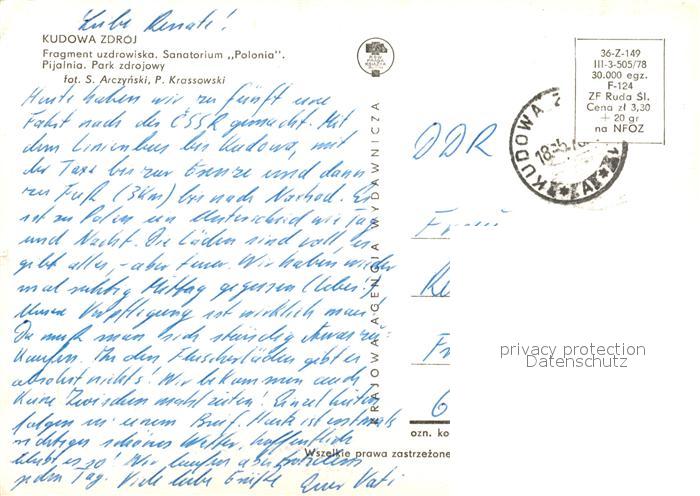 Liebe Renate!
KUDOWA ZDRÓJ
Fragment uzdrowiska. Sanatorium „Polonia".
Pijalnia. Park zdrojowy
fot. S. Arczyński, P. Krassowski
Heute haben wir zu fünft eine
Fahrt nach der ČSSR gemacht. Mit
dem Linienbus bis Kudowa, mit
der Taxe bis zur Grenze und dann
zu Fuß (3km) bis nach Nachod. Es
ist zu Polen ein Unterschied wie Tag
und Nacht. Die Läden sind voll, es
gibt alles, - aber teuer. Wir haben wieder
mal richtig Mittag gegessen (Leber).
Unsere Verpflegung ist wirklich mau!
Da muß man sich ständig etwas zu-
kaufen. In den Fleischerläden gibt es
absolut nichts! Wir bekommen auch
keine Zwischenmahlzeiten! Einzelheiten
folgen in einem Brief. Heute ist erstmals
richtiges schönes Wetter, hoffentlich
bleibt es so! Wir laufen aber trotzdem
jeden Tag. Viele liebe Grüße Euer Vati
KRAJOWA AGENCJA WYDAWNICZA
36-Z-149
III-3-505/78
30.000 egz.
F-124
ZF Ruda Śl.
Cena zł 3,30
+ 20 gr
na NFOZ
KUDOWA Z
DDR
Frau
privacy protection
Datenschutz
6
ozn. ko
Wszelkie prawa zastrzeżone